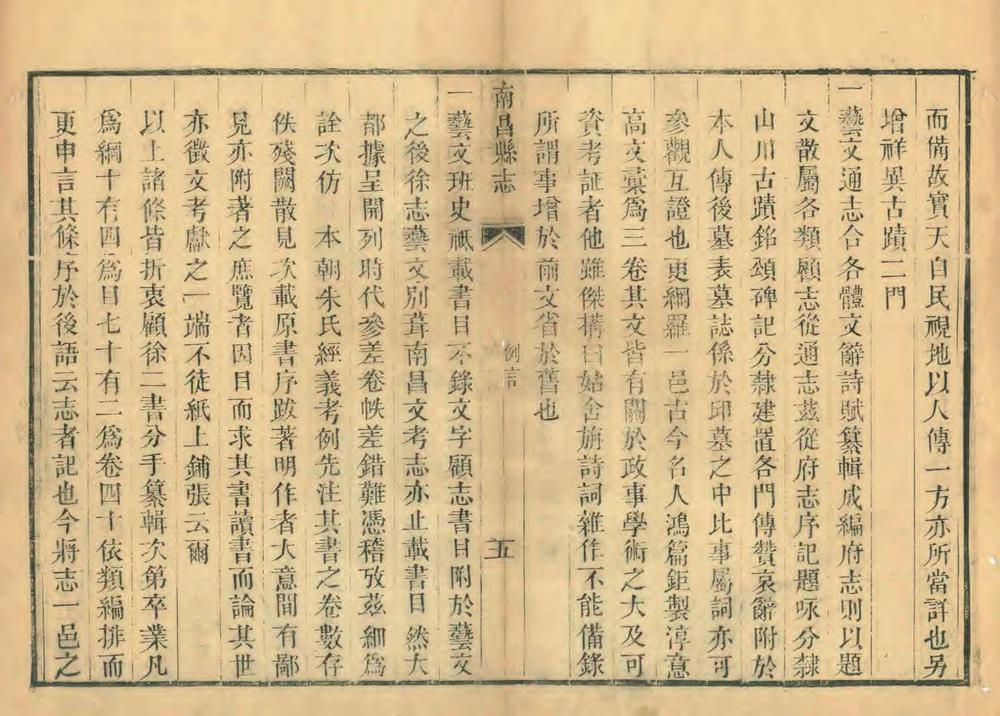 而備故實天自民視地以人傳一方亦所當詳也另
增祥異古蹟二門
一藝文通志合各體文辭詩賦纂輯成編府志則以題
文散屬各類顧志從通志茲從府志序記題咏分隸
山川古蹟銘頌碑記分隸建置各門傳贊哀辭附於
本人傳後墓表墓誌係於邱墓之中比事屬詞亦可
參觀互證也更網羅一邑古今名人鴻篇鉅製淳意
高文彙爲三卷其文皆有關於政事學術之大及可
資考証者他雖傑搆曰姑舍旃詩詞雜作不能備錄
所謂事增於前文省於舊也
南昌縣志
例言
五
一藝文班史祇載書目不錄文字顧志書目附於藝文
之後徐志藝文別葺南昌文考志亦止載書目然大
都據呈開列時代參差卷帙差錯難憑稽攷茲細爲
詮次仿 本朝朱氏經義考例先注其書之卷數存
佚殘闕散見次載原書序跋著明作者大意間有鄙
見亦附著之庶覽者因目而求其書讀書而論其世
亦徵文考獻之一端不徒紙上鋪張云爾
以上諸條皆折衷顧徐二書分手纂輯次第卒業凡
爲綱十有四爲目七十有二爲卷四十依類編排而
更申言其條序於後語云志者記也今將志一邑之